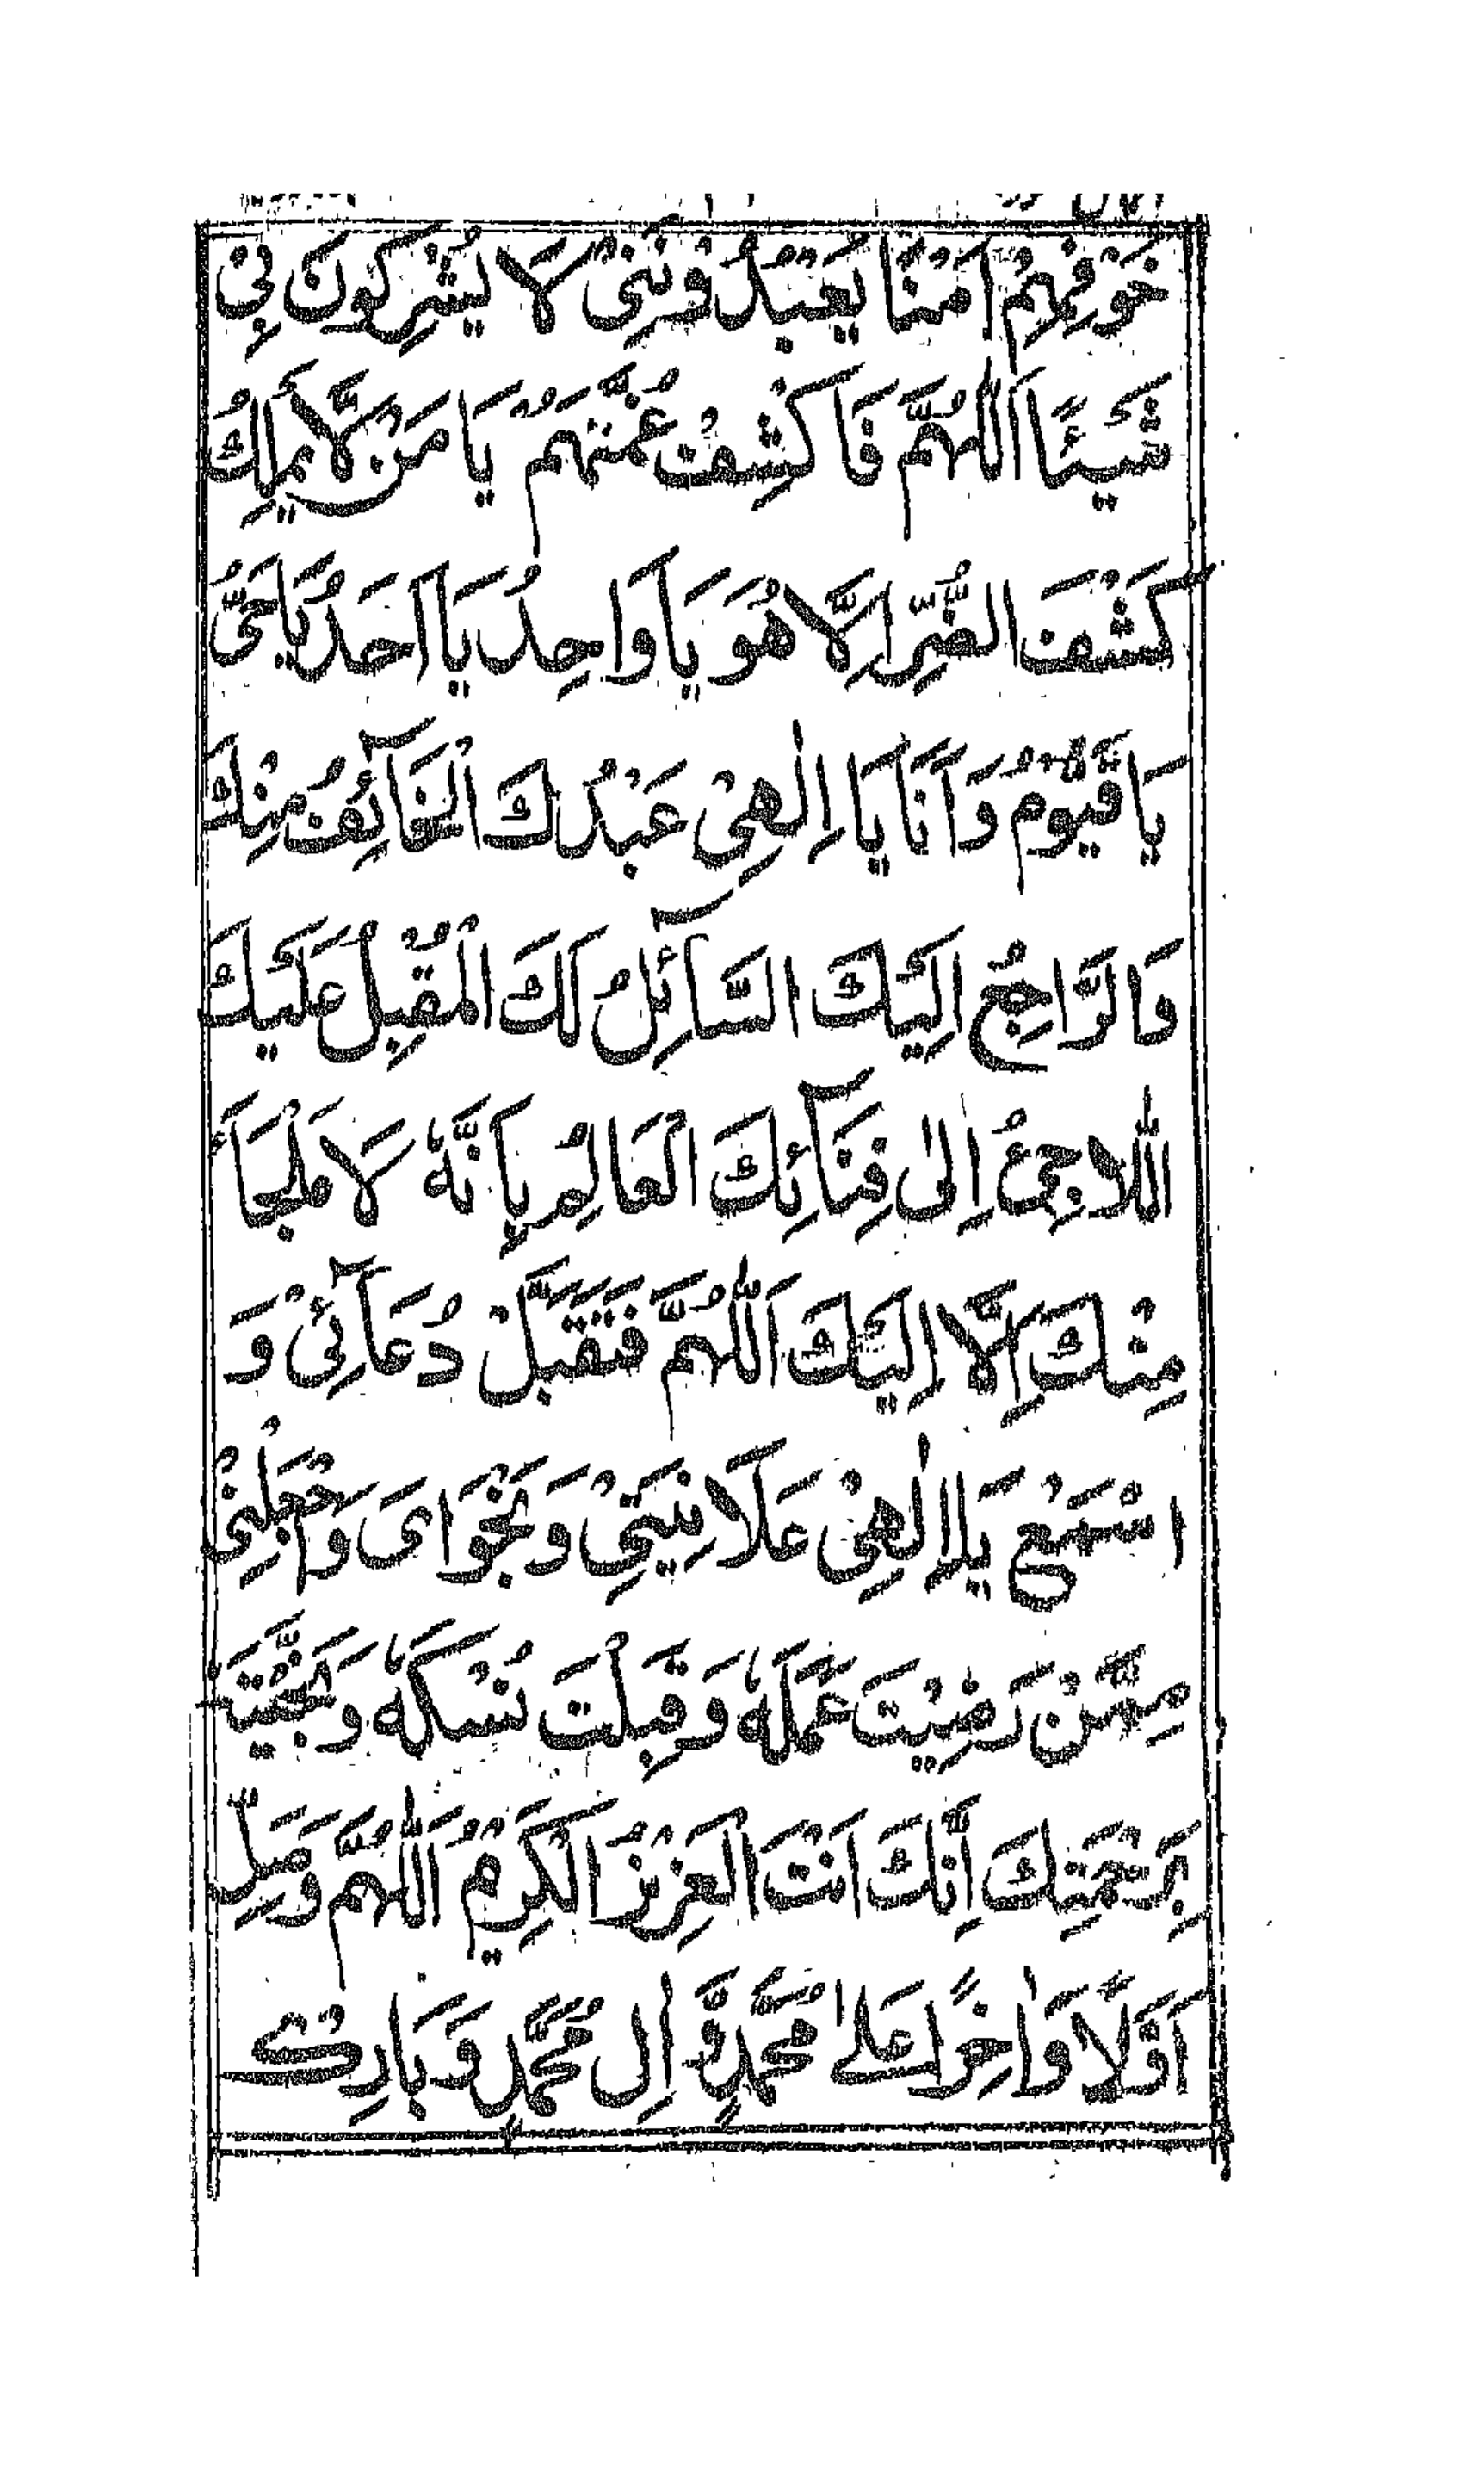 خَوْفِهِمْ اَمْنًا يَعْبُدُوْنَنِيْ لَا يُشْرِكُوْنَ بِيْ
شَيْئًا اَللّٰهُمَّ فَاكْشِفْ غُمَّتَهُمْ يَا مَنْ لَّا يَمْلِكُ
كَشْفَ الضُّرِّ اِلَّا هُوَ يَا وَاحِدُ يَا اَحَدُ يَا حَيُّ
يَا قَيُّوْمُ وَاَنَا يَا اِلٰهِيْ عَبْدُكَ الْخَآئِفُ مِنْكَ
وَالرَّاجِعُ اِلَيْكَ السَّآئِلُ لَكَ الْمُقْبِلُ عَلَيْكَ
اللَّاجِئُ اِلٰى فِنَآئِكَ الْعَالِمُ بِاَنَّهٗ لَا مَلْجَأَ
مِنْكَ اِلَّا اِلَيْكَ اَللّٰهُمَّ فَتَقَبَّلْ دُعَآئِيْ وَ
اسْمَعْ يَا اِلٰهِيْ عَلَانِيَتِيْ وَنَجْوَايَ وَاجْعَلْنِيْ
مِمَّنْ رَضِيْتَ عَمَلَهٗ وَقَبِلْتَ نُسُكَهٗ وَنَجَّيْتَهٗ
بِرَحْمَتِكَ اِنَّكَ اَنْتَ الْعَزِيْزُ الْكَرِيْمُ اَللّٰهُمَّ وَصَلِّ
اَوَّلًا وَاٰخِرًا عَلٰى مُحَمَّدٍ وَّاٰلِ مُحَمَّدٍ وَّبَارِكْ